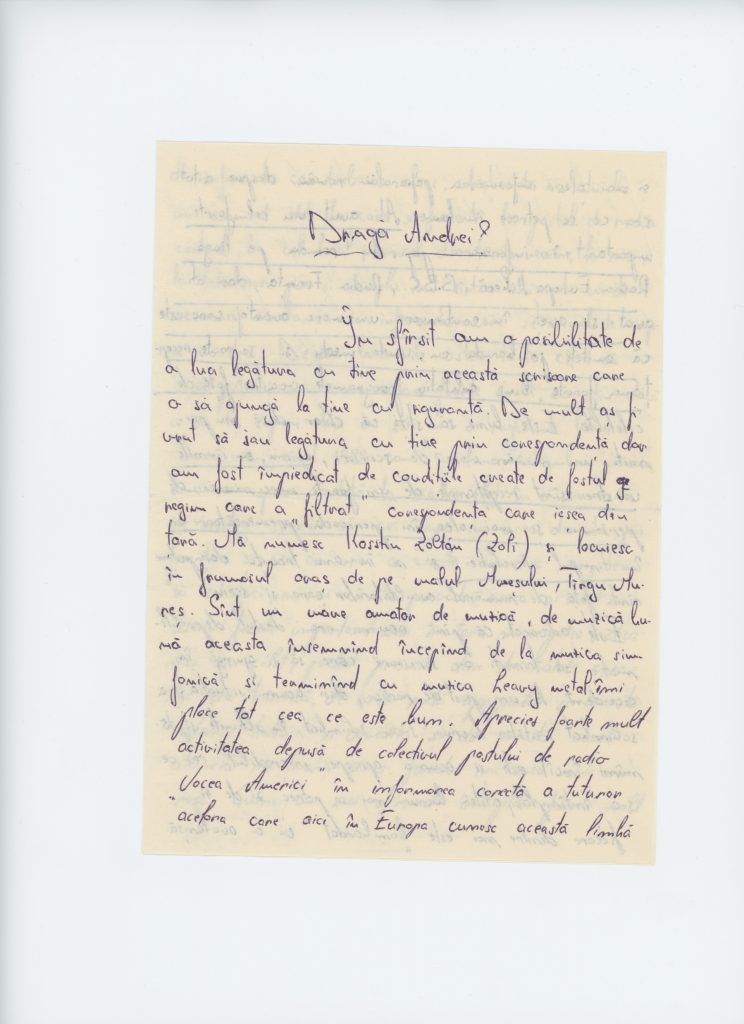 Dragă Andrei!
În sfîrsit am o posibilitate de
a lua legătura cu tine prin această scrisoare care
o să ajungă la tine cu siguranță. De mult aș fi
vrut să iau legătura cu tine prin corespondentă dar
am fost împiedicat de condițiile create de fostul
regim care a „filtrat" corespondența care iesea din
tară. Mă numesc Zoltán (Zoli) și locuiesc
în frumosul oraș de pe malul Mureșului, Tîrgu Mu-
reș. Sînt un mare amator de muzică, de muzică bu-
nă aceasta însemnînd începînd de la muzica sim-
fonică si terminînd cu muzica heavy metal.îmi
place tot cea ce este bun. Apreciez foarte mult
activitatea depusă de colectivul postului de radio
"Vocea Americi" în informarea corectă a tuturor
acelora care aici în Europa cunosc această limbă